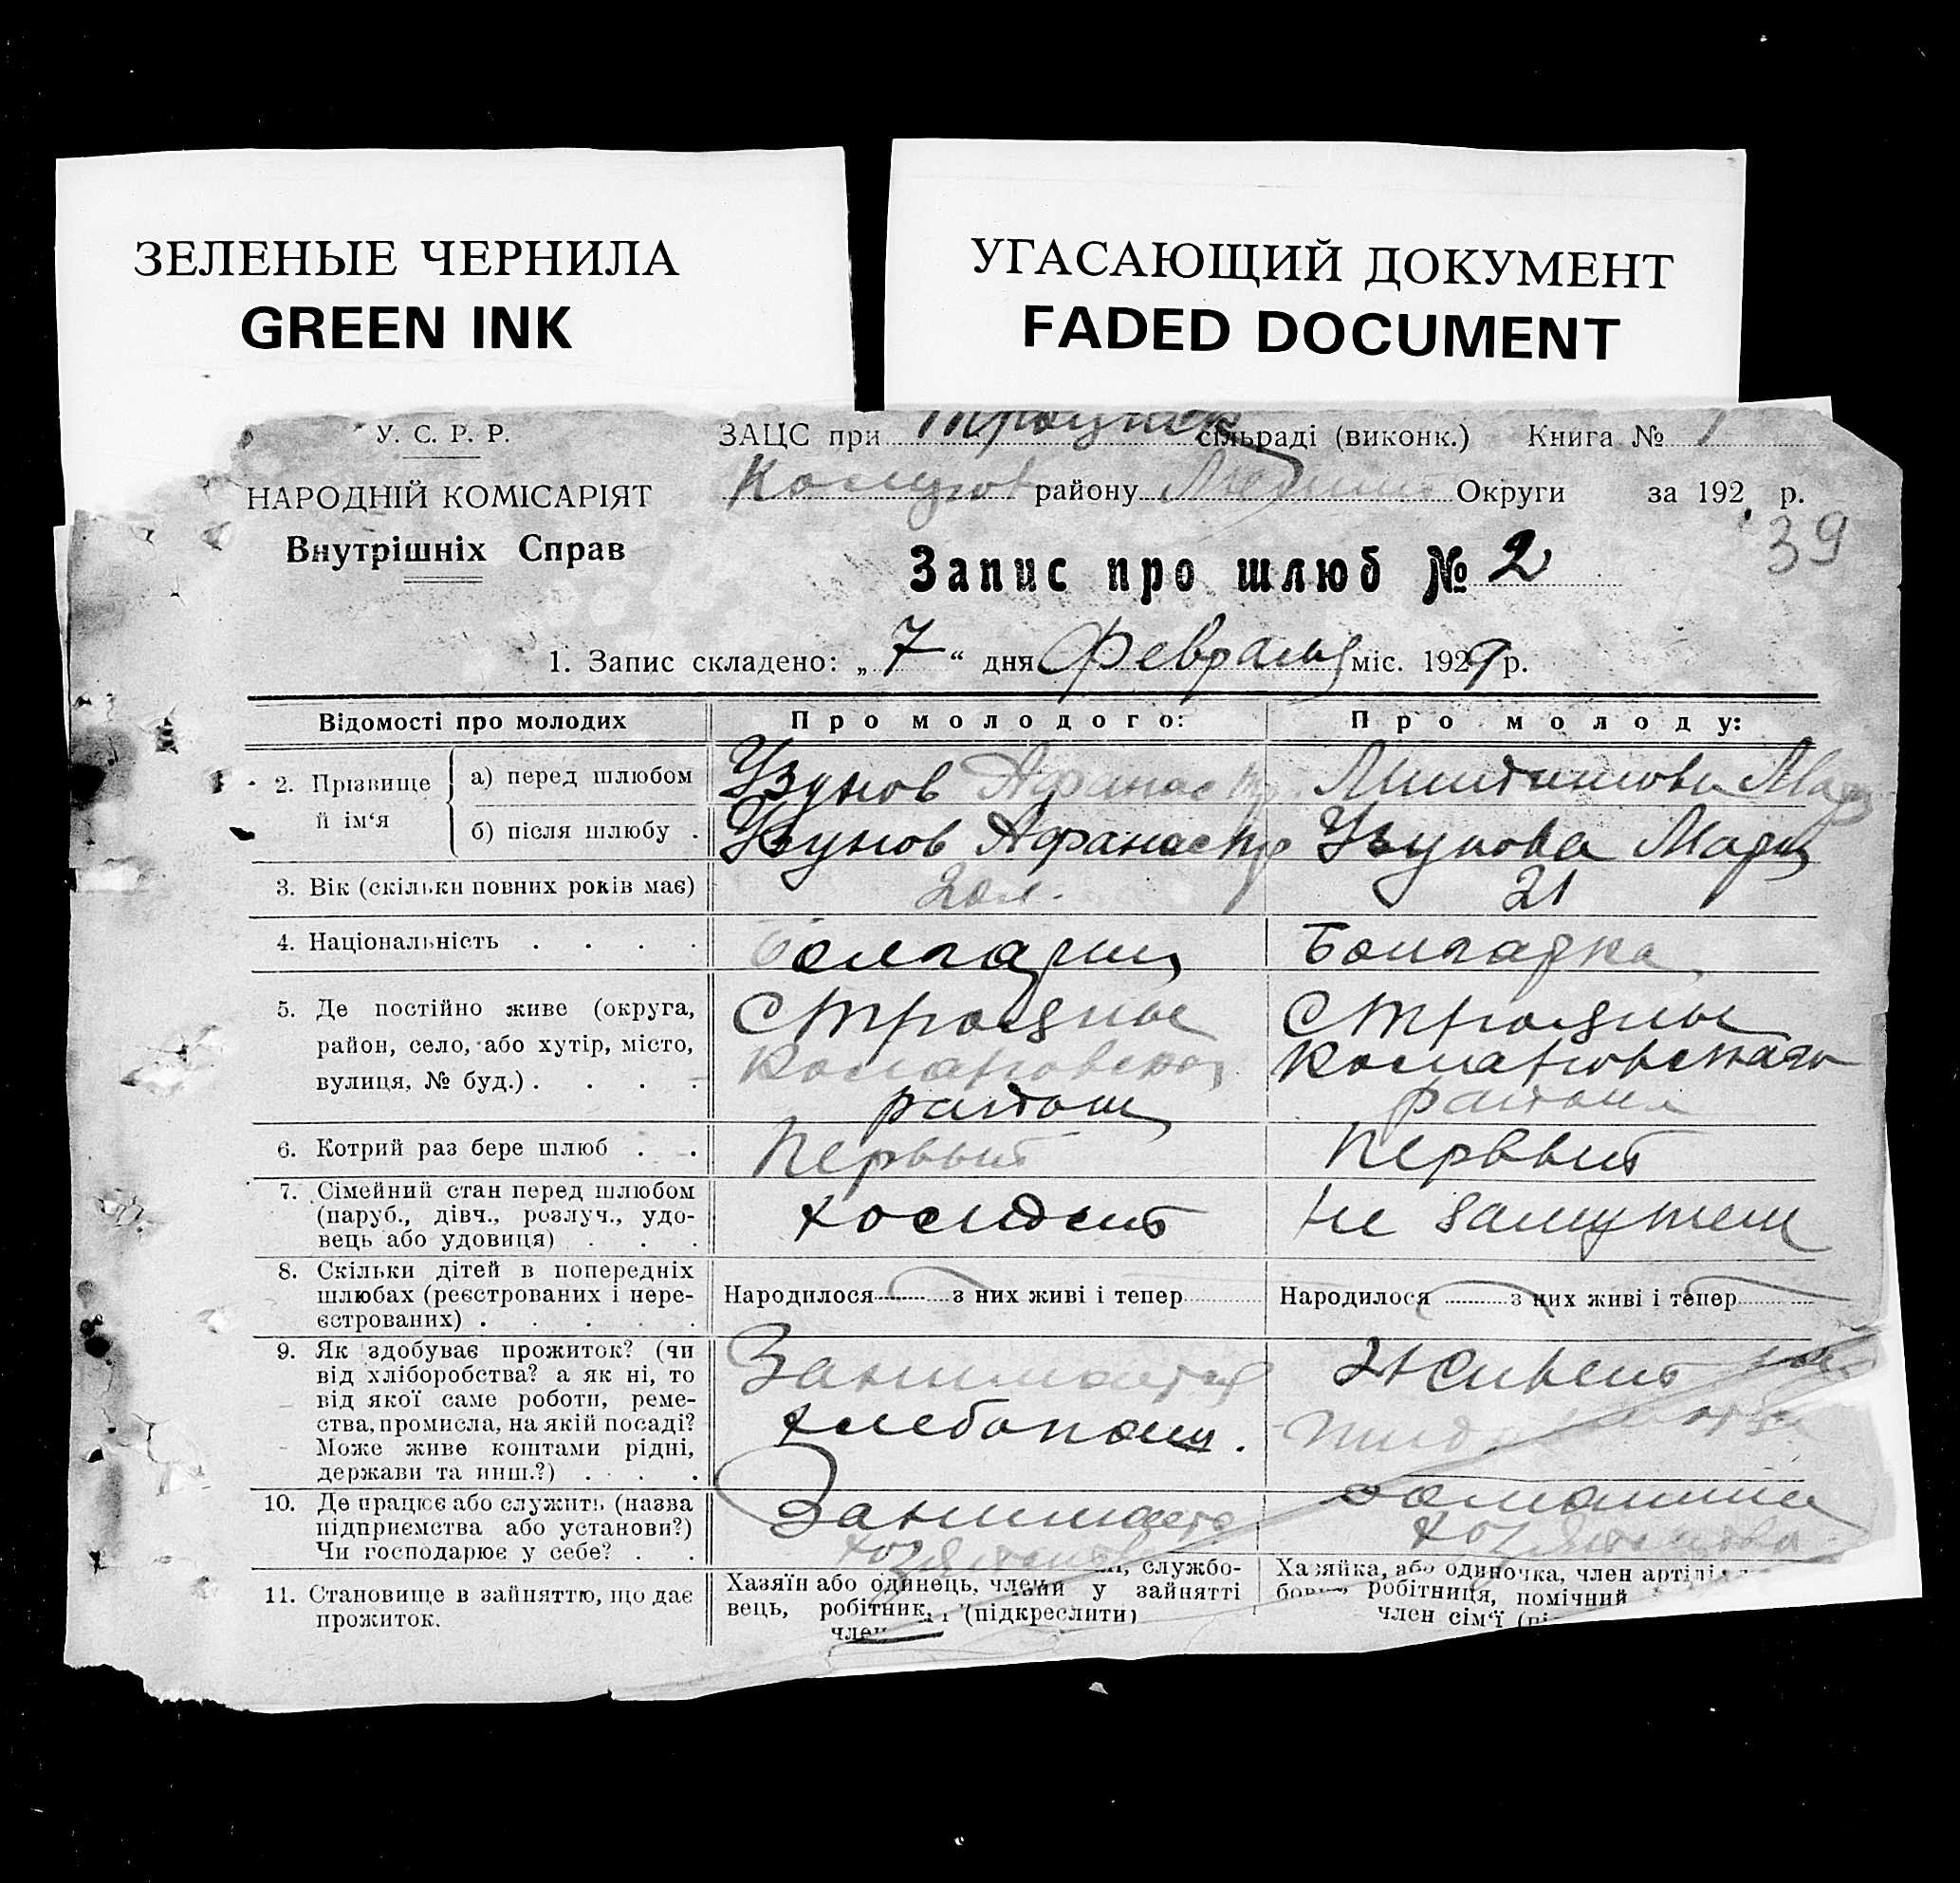 ЗЕЛЕНЫЕ ЧЕРНИЛА
GREEN INK
УГАСАЮЩИЙ ДОКУМЕНТ
FADED DOCUMENT
У. С. Р. Р.
НАРОДНІЙ КОМІСАРІЯТ
Внутрішніх Справ
ЗАЦС при сільраді (виконк.) Книга № 1
району Округи за 192 р.
39
Запис про шлюб № 2
1. Запис складено: „ 7 “ дня Февраля міс. 1929 р.
Відомості про молодих Про молодого: Про молоду:
2. Прізвище й ім‘я
а) перед шлюбом Узунов Афанасий
б) після шлюбу . Узунов Афанасий Узунова Мария
3. Вік (скільки повних років має) 20 л. 21
4. Національність . . . . Болгарин Болгарка
5. Де постійно живе (округа, С Троицкое С Троицкое
район, село, або хутір, місто,
вулиця, № буд.) . . . . района района
6. Котрий раз бере шлюб . . Первый Первый
7. Сімейний стан перед шлюбом
(паруб., дівч., розлуч., удо-
вець або удовиця) . . . Холост Не замужем
8. Скільки дітей в попередніх
шлюбах (реєстрованих і нере-
єстрованих) . . . . . Народилося з них живі і тепер Народилося з них живі і тепер
9. Як здобуває прожиток? (чи
від хліборобства? а як ні, то
від якої саме роботи, реме-
ства, промисла, на якій посаді?
Може живе коштами рідні,
держави та инш.?) . . . .
Занимается
хлебопаш.
Живет
10. Де працює або служить (назва
підприємства або установи?)
Чи господарює у себе? . .
Домашнее
хозяйство
11. Становище в зайняттю, що дає
прожиток.
службо-
Хазяїн або одинець, член у зайнятті
вець, робітник, (підкреслити)
член
Хазяйка, або одиночка, член артілі
робітниця, помічний
член сім‘ї